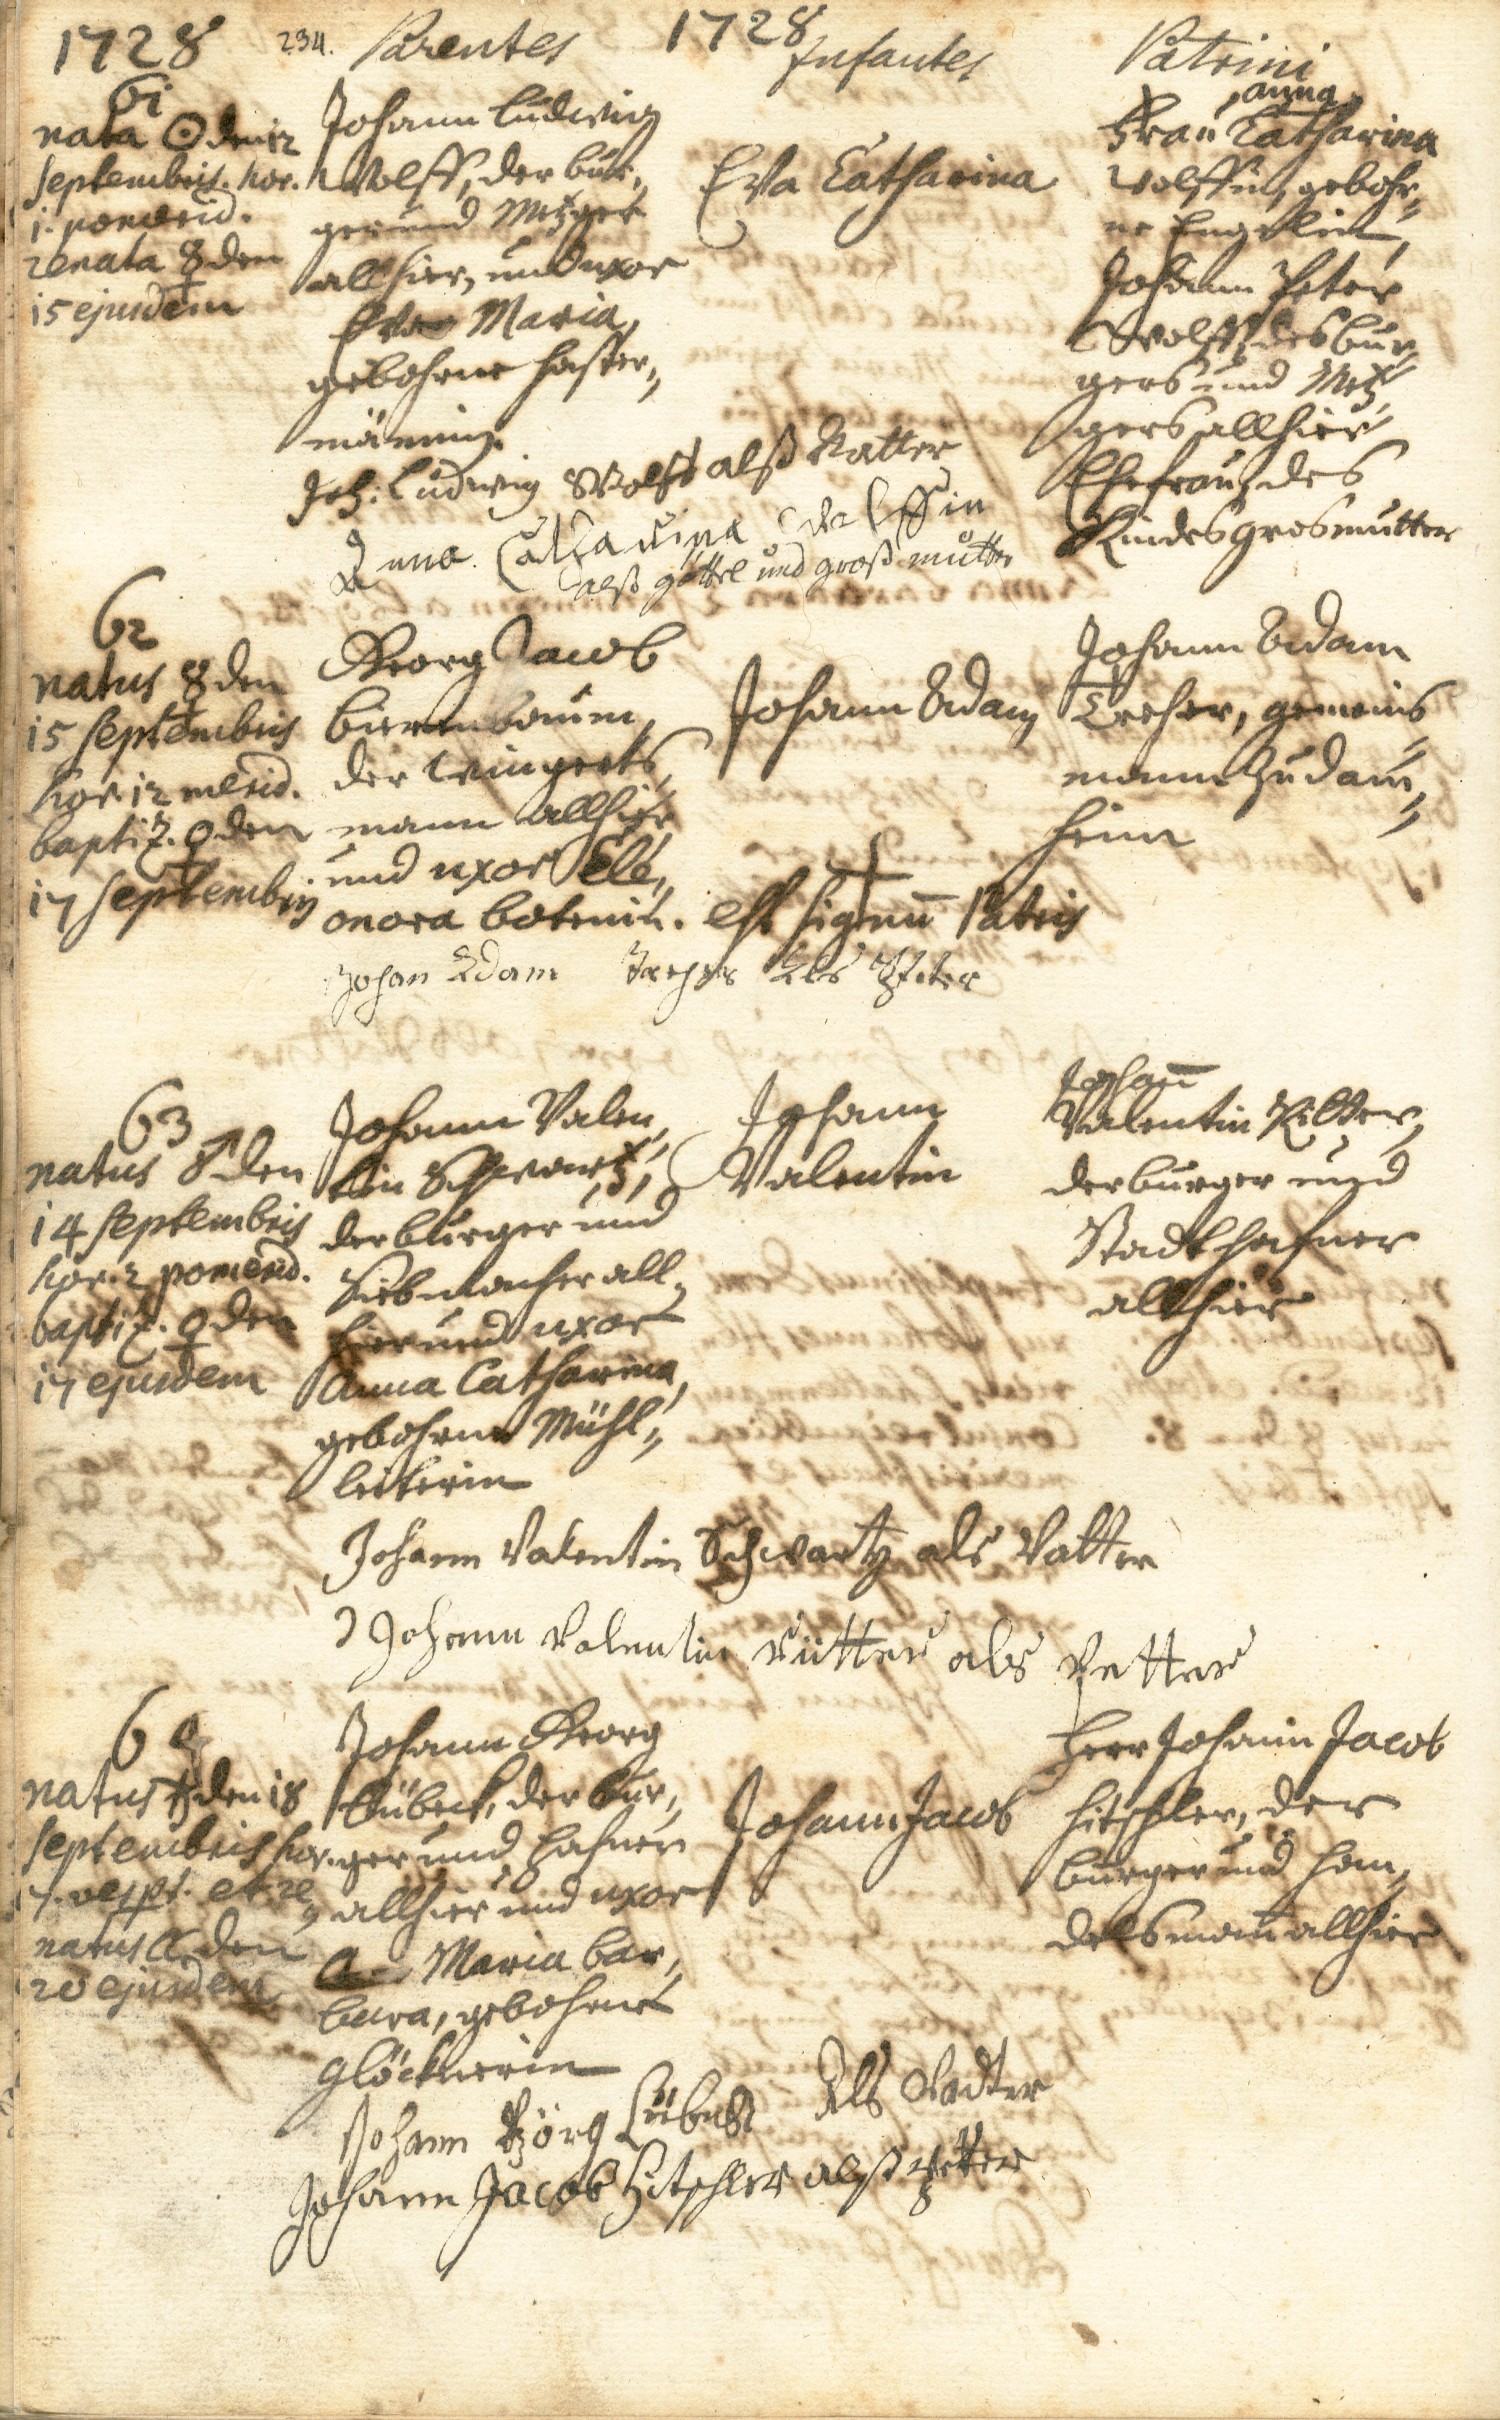 1728 234. Parentes 1728 Infantes Patrini
61
nata ☉ den 12
Septembris. hor.
1. pomerid.
renata ☿ den
15 ejusdem
Johann Ludwig
Wolff, der bur„
ger und Metzger
allhier, und uxor
Eva Maria,
gebohrne Haster„
männin.
Eva Catharina
anna
Frau Catharina
Wolffin, gebohr„
ne Engelin,
Johann Peter
Wolffs, des bur„
gers und Metz„
gers allhier
Ehefrau, des
Kindes grosmutter
Joh: Ludwig Wolff alß Vatter
Anna Catharina Wolffin
alß göttel und groß mutter
62
natus ☿ den
15 Septembris
hor. 12 merid.
baptiz. ♀ den
17 Septembris
Georg Jacob
Birnbaum,
der Wingerts„
mann allhier
und uxor Ele„
onora botenin.
Johann Adam
Johann Adam
Treher, gemeins„
mann zu dau„
heim
† est signū Patris
Johan Adam Treher als Pfetter
63
natus ♂ den
14 Septembris
hor. 2 pomerid.
baptiz. ♀ den
17 ejusdem
Johann Valen„
tin Schwartz,
der burger und
Siebmacher all„
hier und uxor
Anna Catharina,
gebohrne Mühl„
leiterin
Johann
Valentin
Johañ
Valentin Ritter,
der burger und
Stadthafner
allhier
Johann Valentin Schwartz als Vatter
Johann Valentin Ritter als Petter
64
natus ♄ den 18
Septembris hor.
7. vespt. et re„
natus ☾ den
20 ejusdem
Johann Georg
Lübeck, der bur„
ger und Hafner
allhier und uxor
Maria bar„
bara, gebohrne
Glöcknerin
Johann Jacob
Herr Johann Jacob
Hitschler, der
burger und Han„
delsmañ allhier
Johann Görg Lübeck Als Vadter
Johann Jacob Hitschler alß Petter